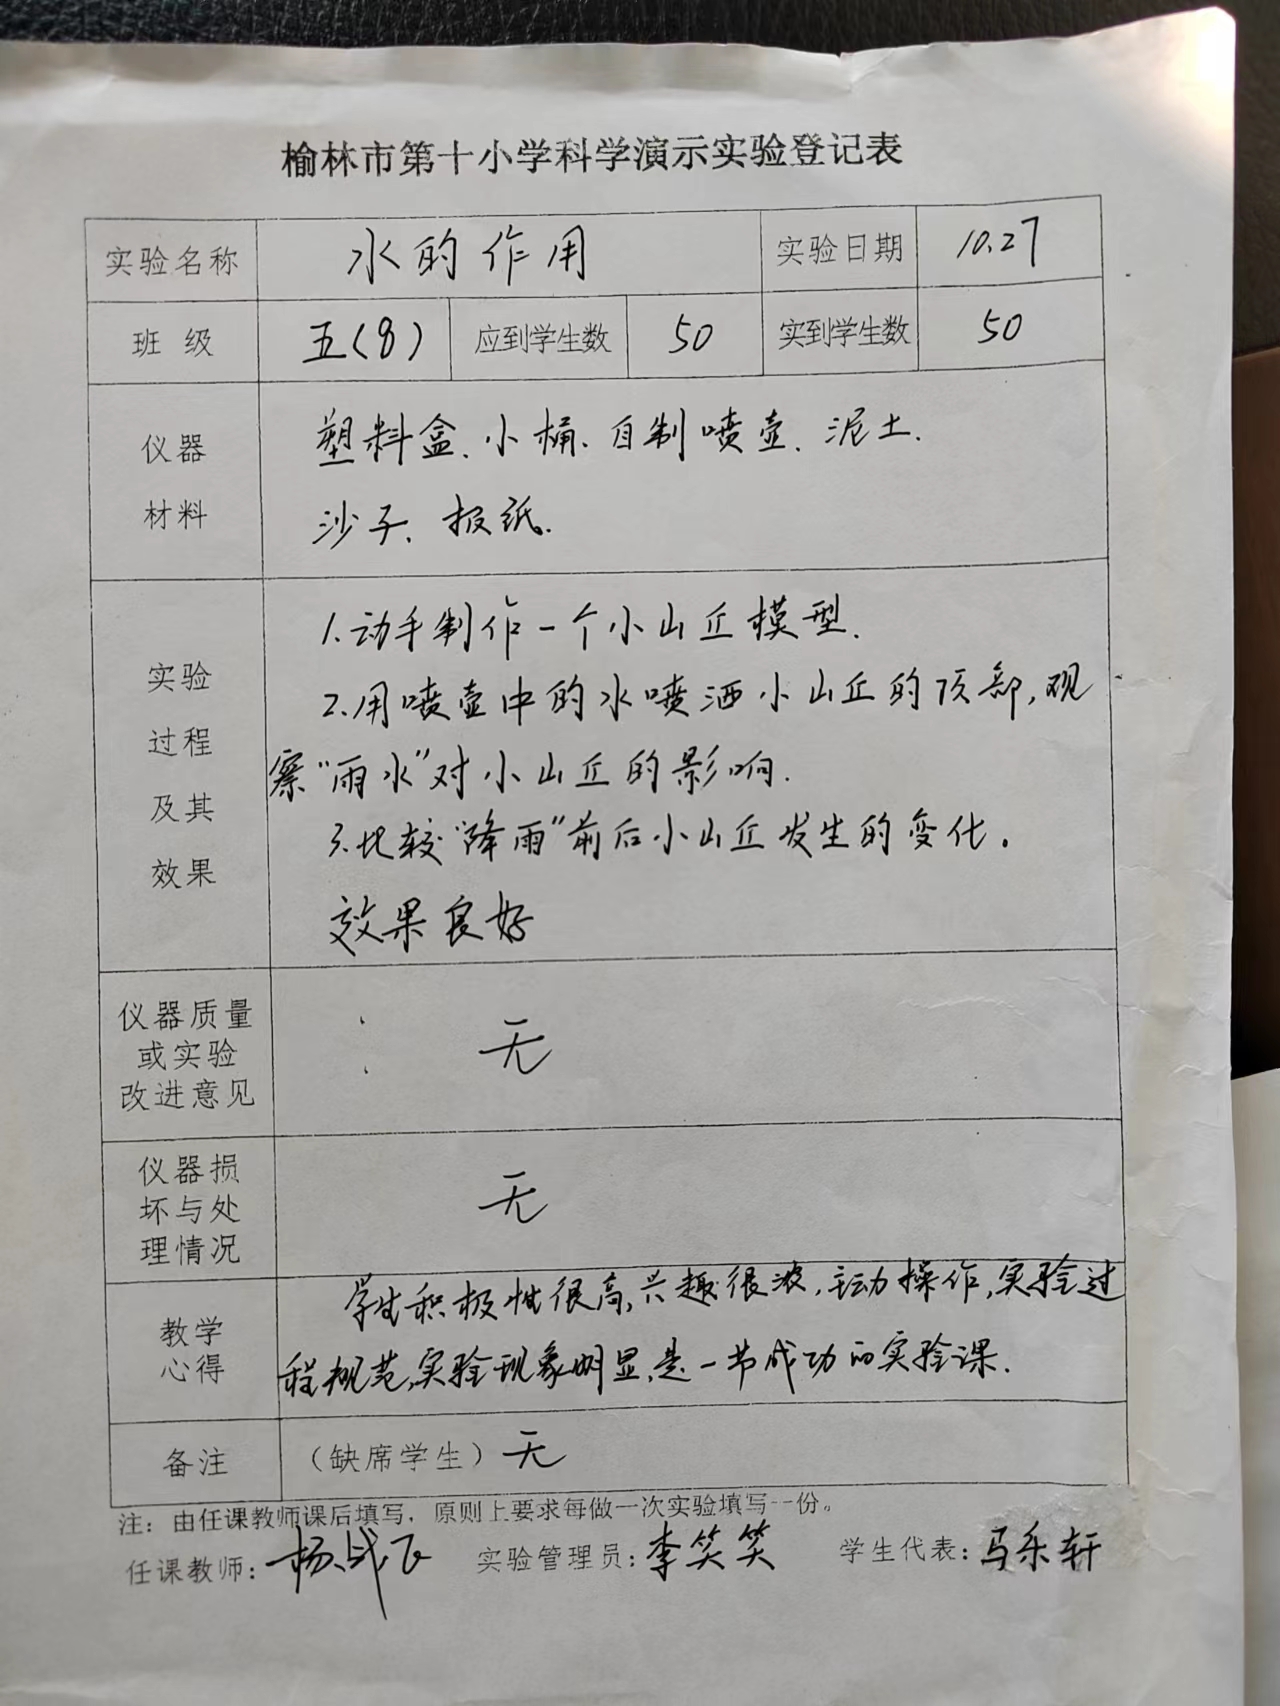 榆林市第十小学科学演示实验登记表
实验名称 水的作用 实验日期 10.27
班 级 五(8) 应到学生数 50 实到学生数 50
仪器
材料
塑料盒、小桶、自制喷壶、泥土、
沙子、报纸.
实验
过程
及其
效果
1.动手制作一个小山丘模型.
2.用喷壶中的水喷洒小山丘的顶部,观
察“雨水”对小山丘的影响.
3.比较“降雨”前后小山丘发生的变化。
效果良好
仪器质量
或实验
改进意见
无
仪器损
坏与处
理情况
无
教学
心得
学生积极性很高,兴趣很浓,主动操作,实验过
程规范,实验现象明显,是一节成功的实验课.
备注 (缺席学生)无
注：由任课教师课后填写，原则上要求每做一次实验填写一份。
任课教师: 杨 飞 实验管理员: 李笑笑 学生代表: 马乐轩